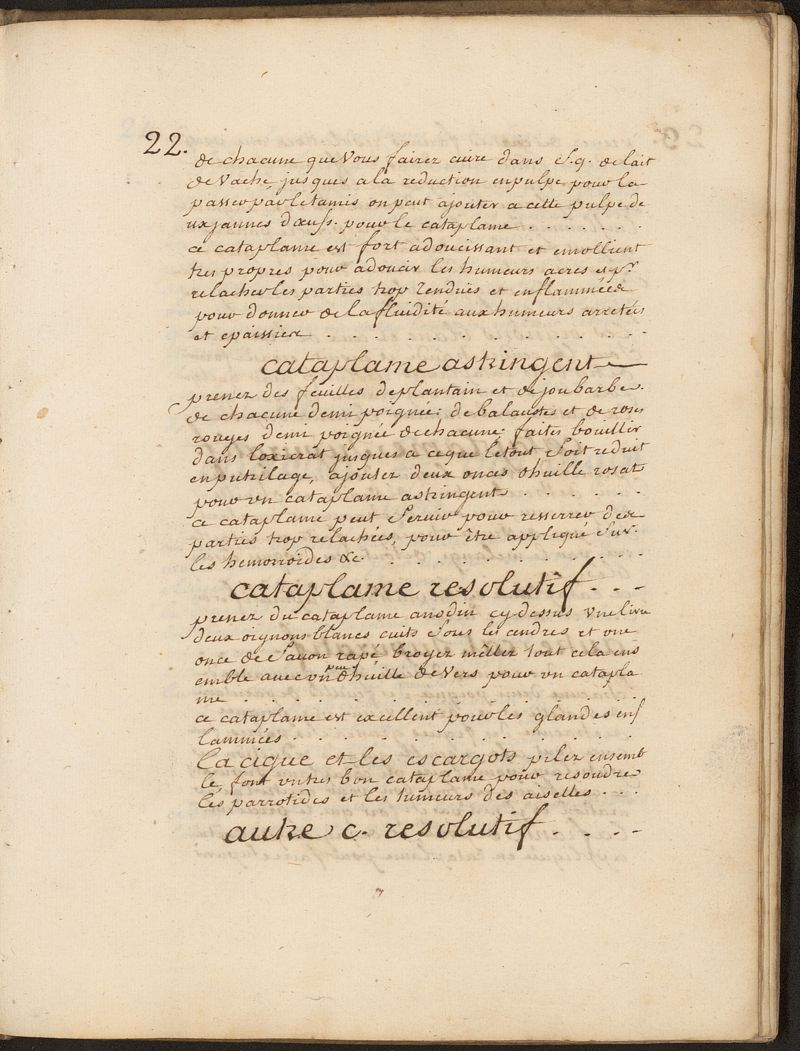 22.
de chacune que vous fairez cuire dans S. q. de lait
de vache jusques a la reduction en pulpe pour la
passer par le tamis on peut ajouter a cette pulpe de
ux jaunes dœufs. pour le cataplame . . . . . . .
ce cataplame est fort adoucissant et emollient
tres propres pour adoucir les humeurs acres et pr
relacher les parties trop tendues et enflammées
pour donner de la fluidité aux humeurs arretées
et epaissies . . . . . . . . . . . . .
cataplame astringent
prenez des feuilles de plantain et de joubarbe.
de chacune demi poignée: de balaustes et de roses
rouges demi poignée de chacune: faites bouillir
dans loxicrat jusques a ce que letout soit reduit
en putrilage, ajoutez deux onces dhuille rosat
pour vn cataplame astringent . . . . . .
ce cataplame peut servir pour resserrer des
parties trop relachées, pour être appliqué sur.
les hemorroides &c. . . . . . . . . .
cataplame resolutif. . . -
prenez du cataplame anodin cy dessus vne livre
deux oignons blancs cuits sous les cendres et vne
once de savon rapé, broyez mellez tout cela ens
emble avec vn peu dhuille de vers pour vn catapla
me . . . . . . . . . . . . . . .
ce cataplame est excellent pour les glandes enf
lammées . . . . . . . . . . . . .
la cigue et les escargots pilez ensemb
le, font vn tres bon cataplame pour resoudre
les parrotides et les humeurs des aiselles. . . .
autre c. resolutif. . . .